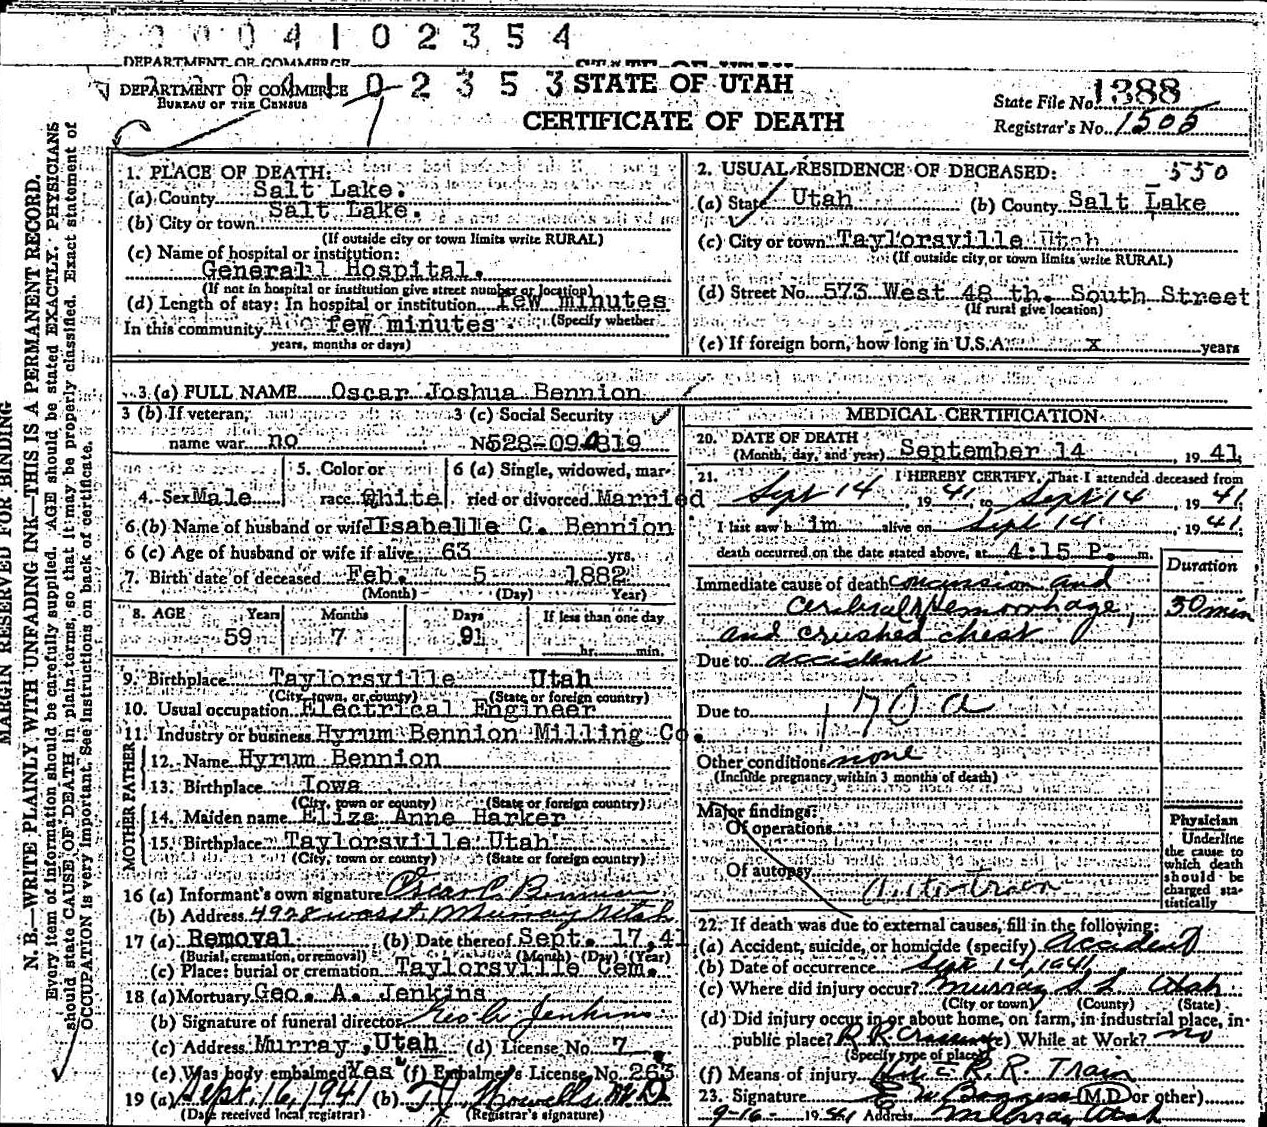 0 0 0 4 1 0 2 3 5 4
DEPARTMENT OF COMMERCE STATE OF UTAH
DEPARTMENT OF COMMERCE 0 2 3 5 3 STATE OF UTAH
BUREAU OF THE CENSUS
CERTIFICATE OF DEATH
State File No. 1388
Registrar's No. 1505
MARGIN RESERVED FOR BINDING
N. B.—WRITE PLAINLY WITH UNFADING INK—THIS IS A PERMANENT RECORD.
Every item of information should be carefully supplied. AGE should be stated EXACTLY. PHYSICIANS
should state CAUSE OF DEATH in plain terms, so that it may be properly classified. Exact statement of
OCCUPATION is very important. See instructions on back of certificate.
1. PLACE OF DEATH:
(a) County Salt Lake.
(b) City or town Salt Lake.
(If outside city or town limits write RURAL)
(c) Name of hospital or institution:
General Hospital.
(If not in hospital or institution give street number or location)
(d) Length of stay: In hospital or institution few minutes
(Specify whether
In this community few minutes.
years, months or days)
2. USUAL RESIDENCE OF DECEASED: 550
(a) State Utah (b) County Salt Lake
(c) City or town Taylorsville Utah
(If outside city or town limits write RURAL)
(d) Street No. 573 West 48 th. South Street
(If rural give location)
(e) If foreign born, how long in U.S.A. x years
3 (a) FULL NAME Oscar Joshua Bennion
3 (b) If veteran, name war no
3 (c) Social Security No. 528-09-4819
4. Sex Male
5. Color or race White
6 (a) Single, widowed, married or divorced Married
6 (b) Name of husband or wife Isabelle C. Bennion
6 (c) Age of husband or wife if alive 63 yrs.
7. Birth date of deceased Feb. 5 1882
(Month) (Day) Year)
8. AGE Years Months Days If less than one day
59 7 91 hr. min.
9. Birthplace Taylorsville Utah
(City, town, or county) (State or foreign country)
10. Usual occupation Electrical Engineer
11. Industry or business Hyrum Bennion Milling Co.
MOTHER FATHER
12. Name Hyrum Bennion
13. Birthplace Iowa
(City, town or county) (State or foreign country)
14. Maiden name Eliza Anne Harker
15. Birthplace Taylorsville Utah
(City, town or county) (State or foreign country)
16 (a) Informant's own signature Oscar C. Bennion
(b) Address 4928 Murray Utah
17 (a) Removal (b) Date thereof Sept. 17, 41
(Burial, cremation, or removal) (Month) (Day) (Year)
(c) Place: burial or cremation Taylorsville Cem.
18 (a) Mortuary Geo. A. Jenkins
(b) Signature of funeral director Geo A Jenkins
(c) Address Murray, Utah (d) License No. 7.
(e) Was body embalmed Yes (f) Embalmer's License No. 263
19 (a) Sept. 16, 1941 (b) M.D
(Date received local registrar) (Registrar's signature)
MEDICAL CERTIFICATION
20. DATE OF DEATH
(Month, day, and year) September 14, 1941
21. I HEREBY CERTIFY, That I attended deceased from
Sept 14, 1941, to Sept 14, 1941.
I last saw h im alive on Sept 14, 1941.
death occurred on the date stated above, at 4:15 P. m.
Duration
Immediate cause of death concussion and
cerebral hemorrhage, 30 min
and crushed chest
Due to accident
Due to 170 a
Other conditions none
(Include pregnancy within 3 months of death)
Major findings:
Of operations
Of autopsy
Auto-train
Physician
Underline
the cause to
which death
should be
charged sta-
tistically
22. If death was due to external causes, fill in the following:
(a) Accident, suicide, or homicide (specify) Accident
(b) Date of occurrence Sept 14, 1941
(c) Where did injury occur? Murray S L Utah
(City or town) (County) (State)
(d) Did injury occur in or about home, on farm, in industrial place, in
public place? R.R. Crossing (e) While at Work? no
(Specify type of place)
(f) Means of injury R. R. Train
23. Signature (M.D. or other)
9-16- 1941 Address Murray Utah